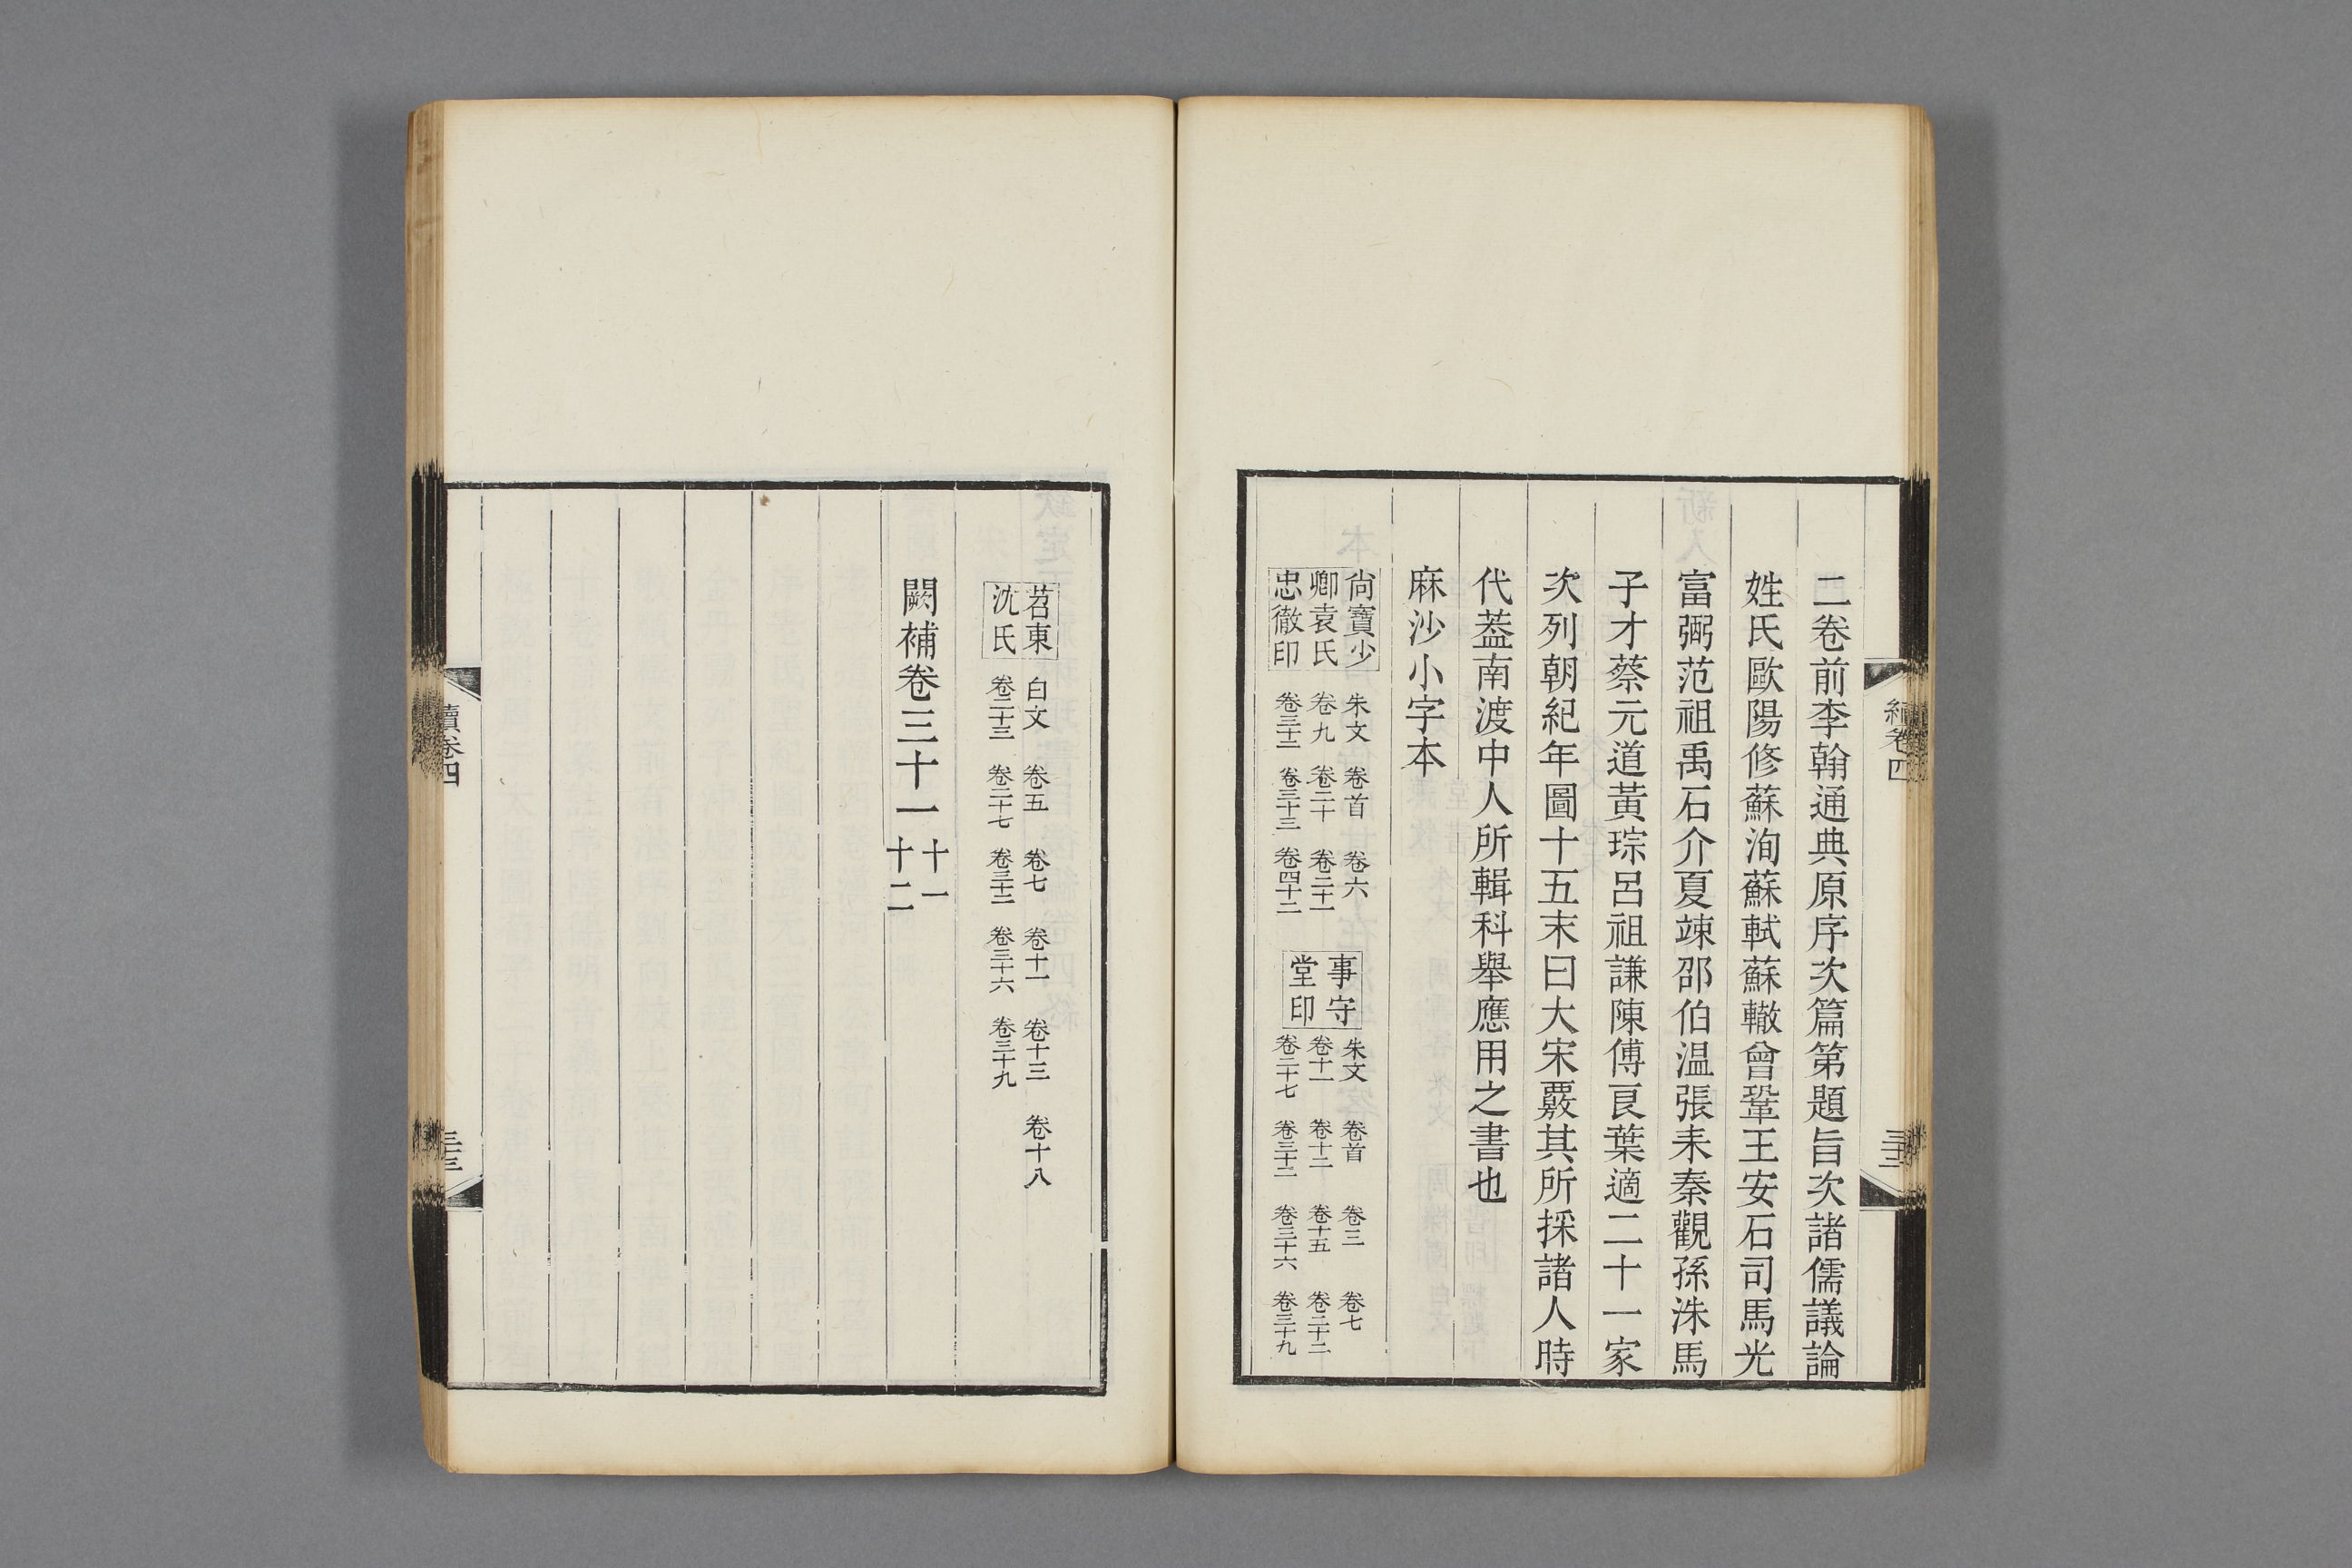 二卷前李翰通典原序次篇第題旨次諸儒議論
姓氏歐陽修蘇洵蘇軾蘇轍曾鞏王安石司馬光
富弼范祖禹石介夏竦邵伯温張耒秦觀孫洙馬
子才蔡元道黃琮呂祖謙陳傅良葉適二十一家
次列朝紀年圖十五末曰大宋覈其所採諸人時
代葢南渡中人所輯科舉應用之書也
麻沙小字本
尙寶少
卿袁氏
忠徹印
朱文 卷首 卷六
卷九 卷二十 卷二十一
卷三十二 卷三十三 卷四十二
事守
堂印
朱文 卷首 卷三 卷七
卷十一 卷十二 卷十五 卷二十二
卷二十七 卷三十二 卷三十六 卷三十九
苕東
沈氏
白文 卷五 卷七 卷十一 卷十三 卷十八
卷二十三 卷二十七 卷三十二 卷三十六 卷三十九
闕補卷三十一
十一
十二
續卷四